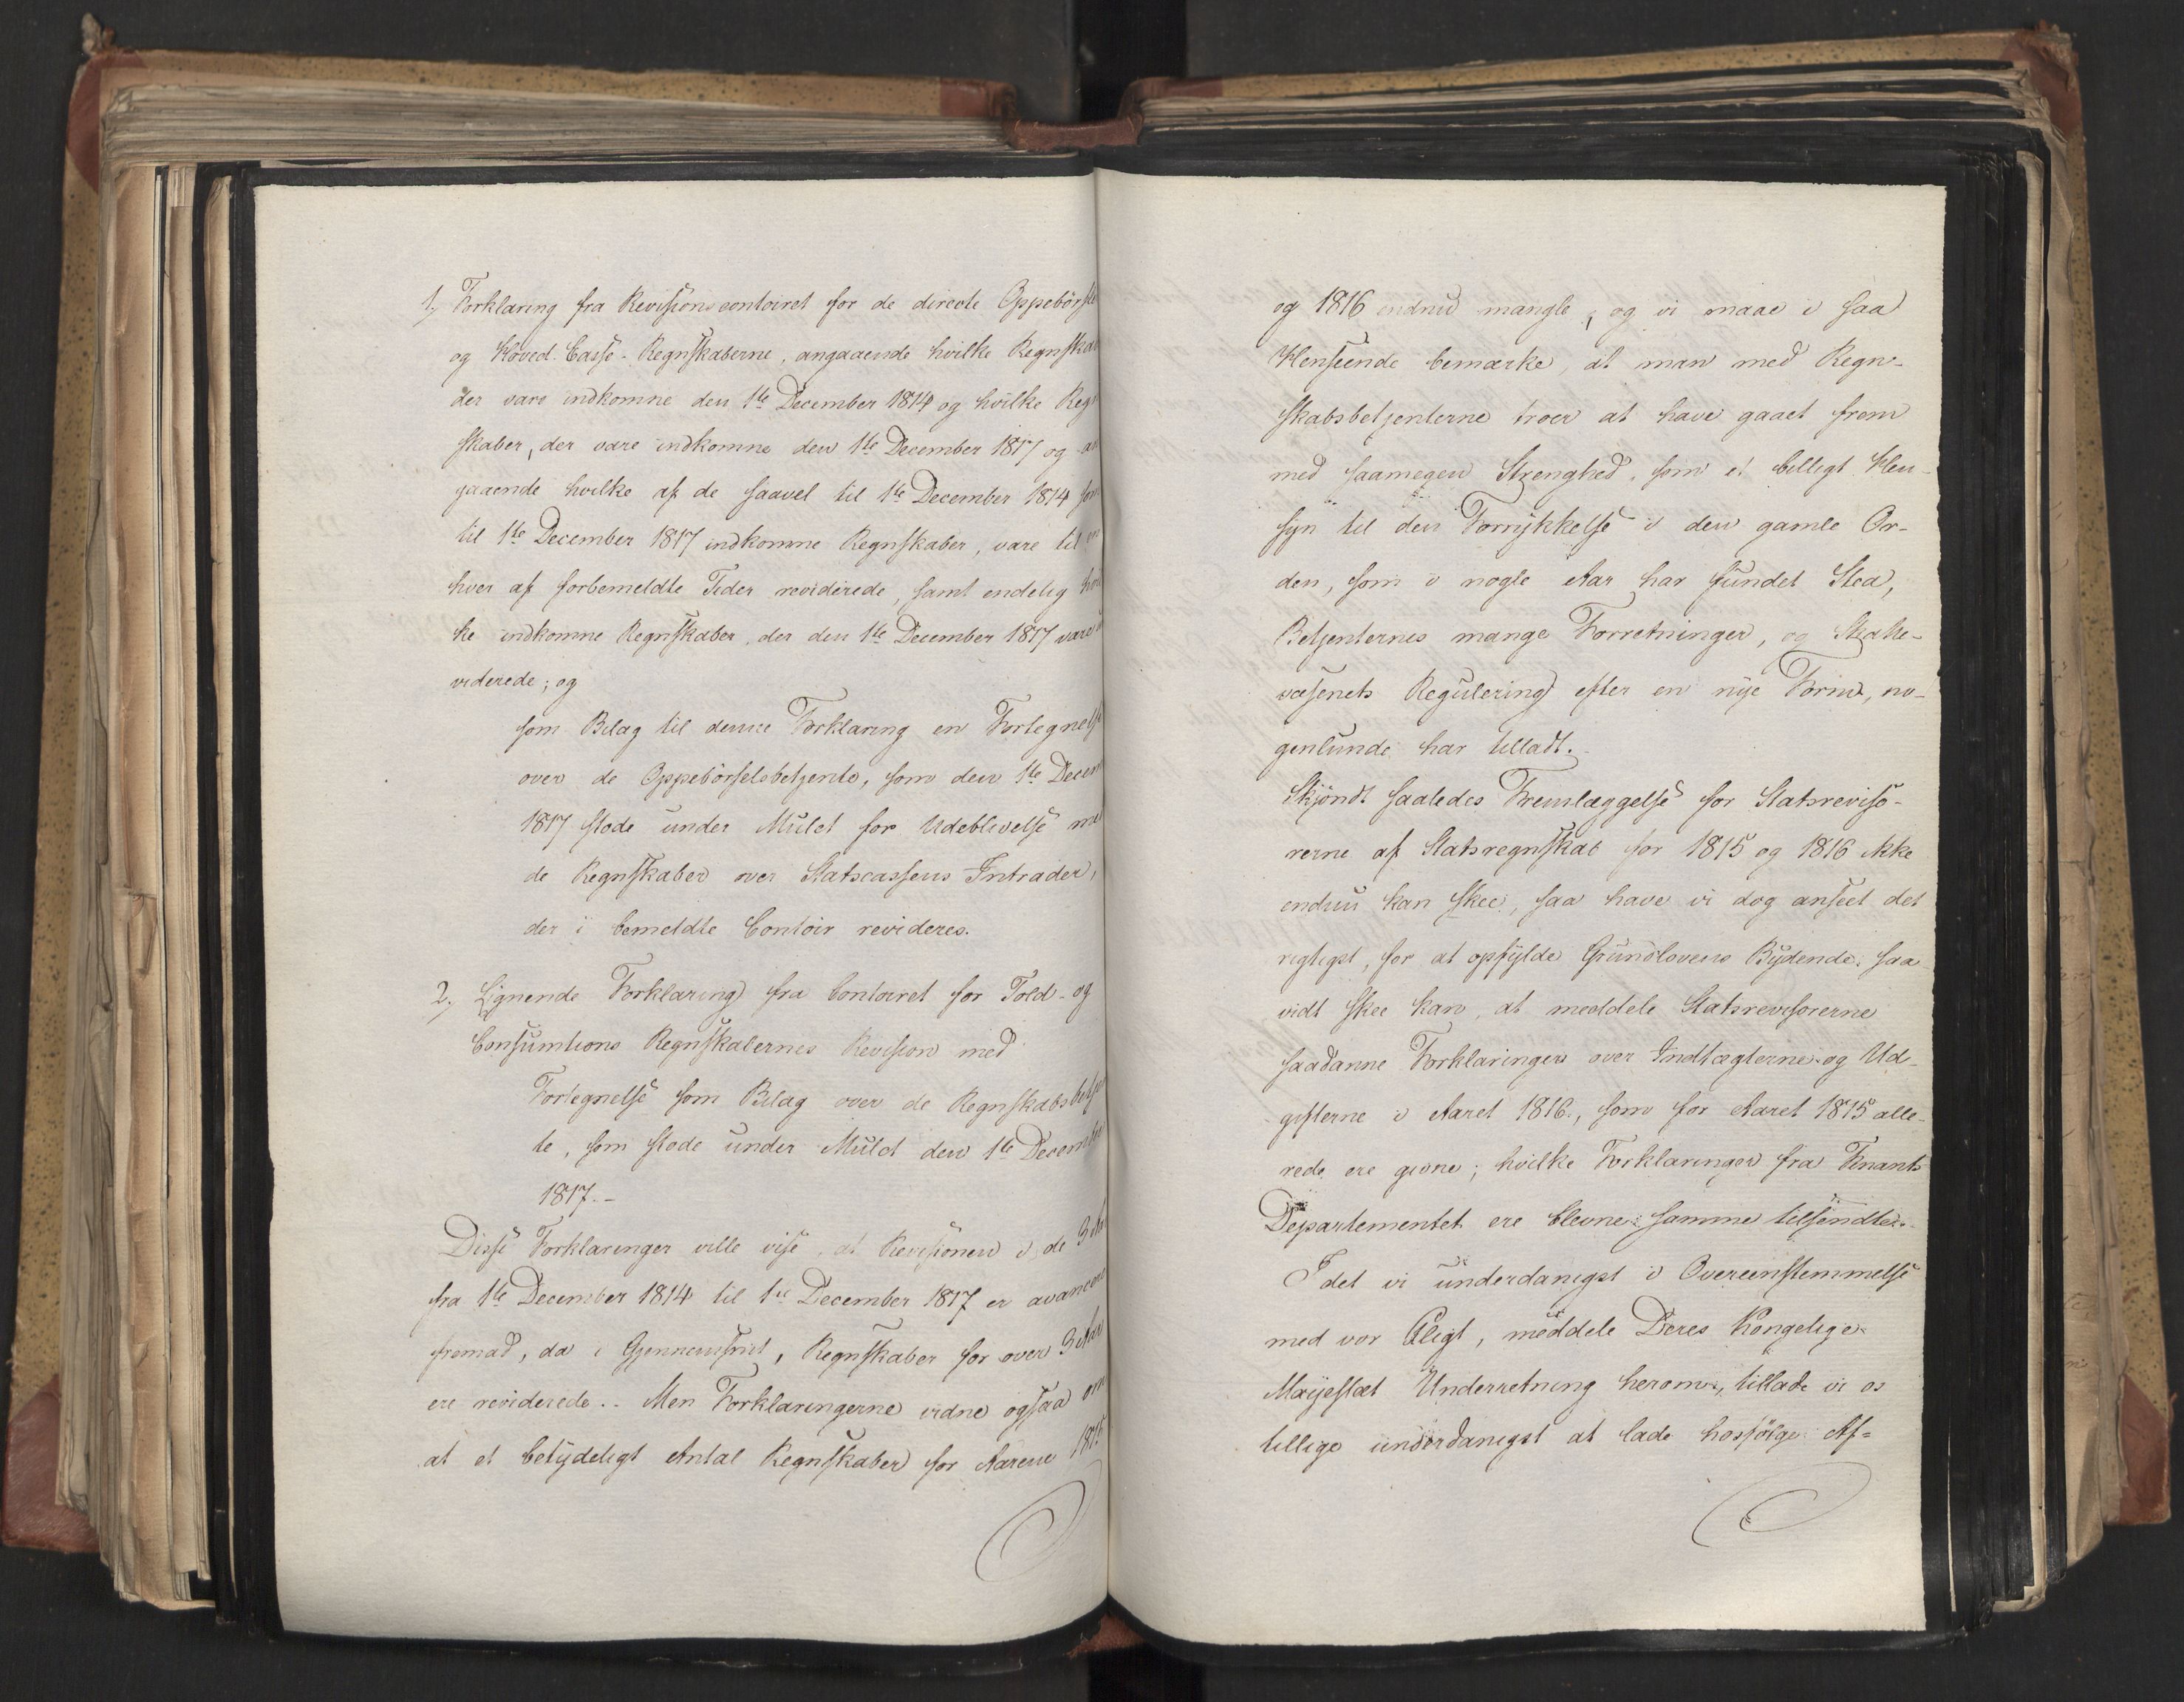 1.) Forklaring fra Revisionscontoiret for de directe Oppebörsle
og Hoved-Casse-Regnskaberne, angaaende hvilke Regnskab
der vare indkomne den 1te December 1814 og hvilke Regn
skaber, der vare indkomne den 1te December 1817 og an
gaaende hvilke af de saavel til 1te December 1814 som
til 1te December 1817 indkomne Regnskaber, vare til en
hver af forbemeldte Tider reviderede, samt endelig hvil
ke indkomne Regnskaber, der den 1te December 1817 vare u
viderede; og
som Bilag til denne Forklaring en Fortegnelse
over de Oppebörselsbetjente, som den 1te Decem
1817 stode under Mulct for Udeblivelse med
de Regnskaber over Statscassens Intrader,
der i bemeldte Contoir revideres.
2.) Lignende Forklaring fra Contoiret for Told- og
Consumtions Regnskabernes Revision med
Fortegnelse som Bilag over de Regnskabsbetjen
te, som stode under Mulct den 1te December
1817.-
Disse Forklaringer ville vise, at Revisionen i de 3 Aar
fra 1te December 1814 til 1te December 1817 er avanceret
fremad, da i Gjennemsnit, Regnskaber for over 3 Aar
ere reviderede.- Men Forklaringerne vidne ogsaa om
at et betydeligt Antal Regnskaber for Aarene 1815
og 1816 endnu mangle, og vi maae i saa
Henseende bemærke, at man med Regn-
skabsbetjenterne troer at have gaaet frem
med saamegen Strenghed, som et billigt Hen-
syn til den Forrykkelse i den gamle Or-
den, som i nogle Aar har fundet Sted,
Betjenternes mange Forretninger, og Skatte-
væsenets Regulering efter en nye Form, no-
genlunde har tilladt.
Skjöndt saaledes Fremlæggelse for Statsreviso-
rerne af Statsregnskab for 1815 og 1816 ikke
endnu kan skee, saa have vi dog anseet det
rigtigst, for at opfylde Grundlovens Bydende, saa
vidt skee kan, at meddele Statsrevisorerne
saadanne Forklaringer over Indtægterne og Ud-
gifterne i Aaret 1816., som for Aaret 1815 alle-
rede ere givne; hvilke Forklaringer fra Finants
Departementet ere blevne samme tilsendte.
Idet vi underdanigst i Overeenstemmelse
med vor Pligt, meddele Deres Kongelige
Majestæt Underretning herom, tillade vi os
tillige underdanigst at lade hosfölge Af-